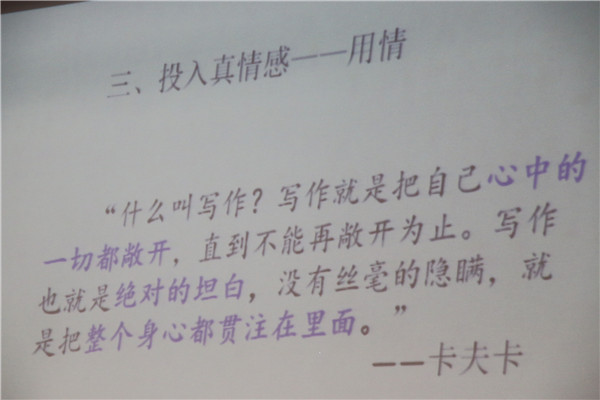 三、投入真情感——用情
“什么叫写作？写作就是把自己心中的
一切都敞开，直到不能再敞开为止。写作
也就是绝对的坦白，没有丝毫的隐瞒，就
是把整个身心都贯注在里面。”
——卡夫卡